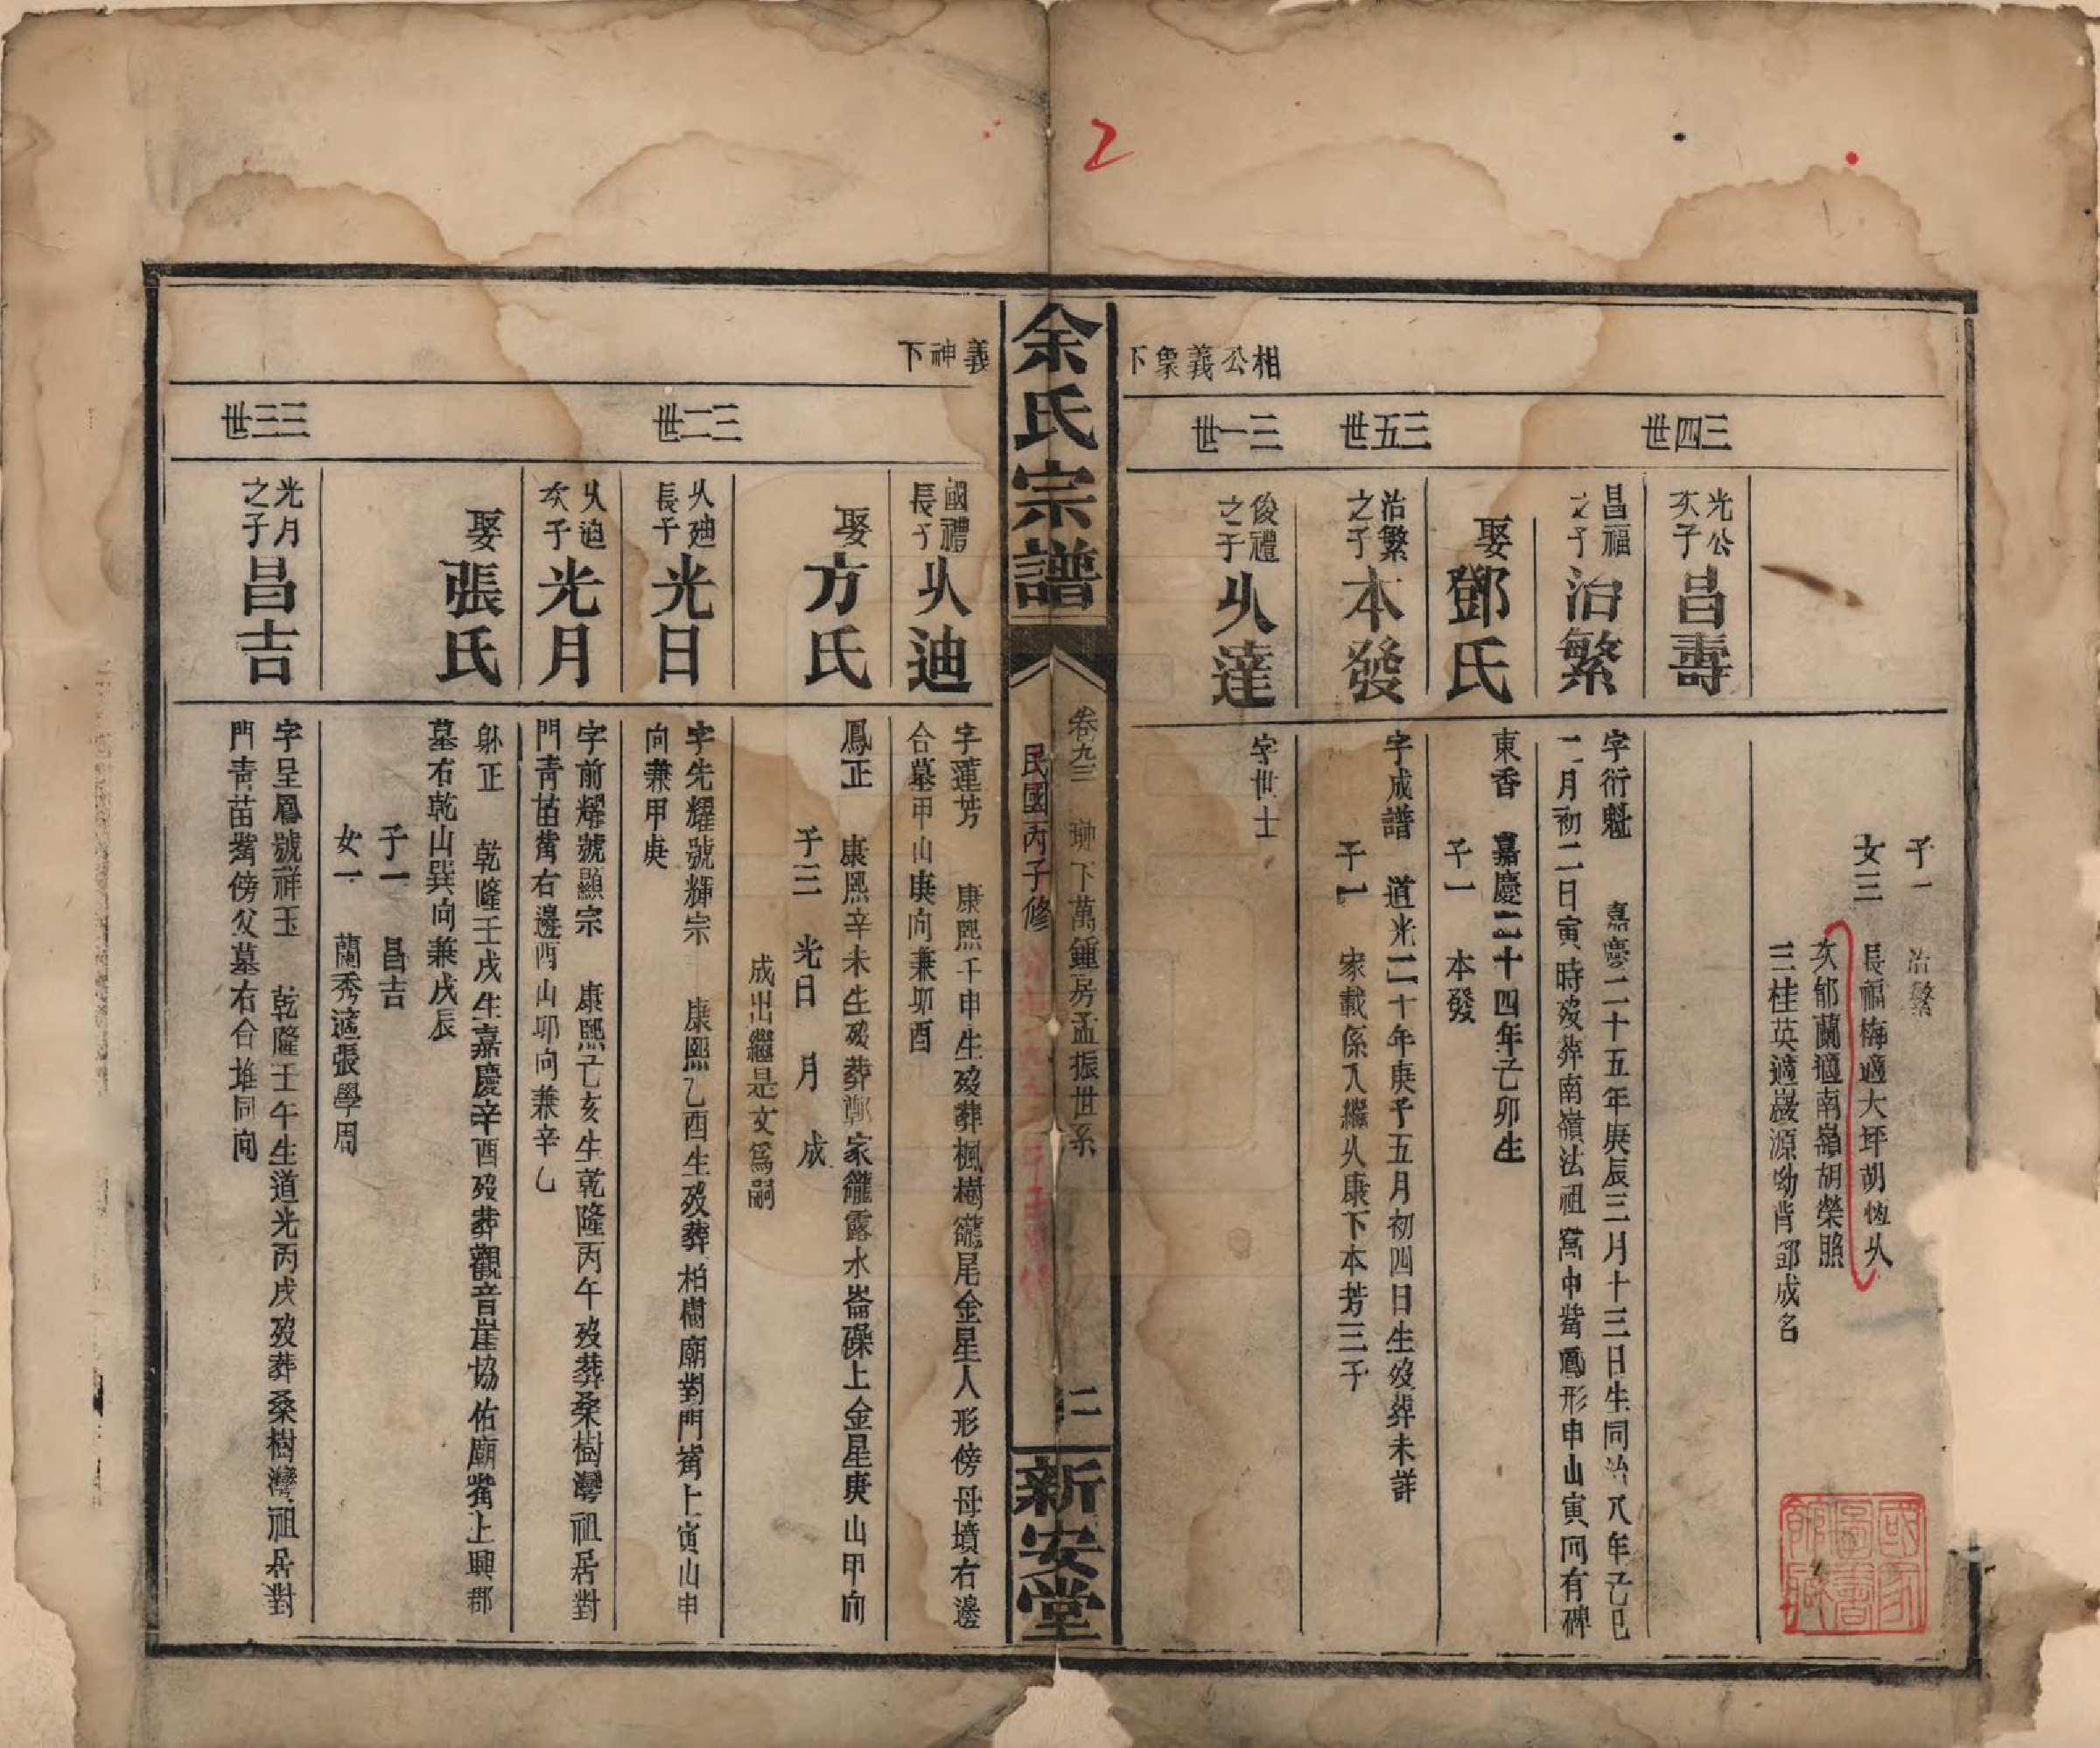 2
相公義象下
三四世
三五世
三一世
子一　治繁
女三　長福梅適大坪胡恆㕥
次郁蘭適南嶺胡榮照
三桂英適巖源坳背鄧成名
光公
次子
昌壽
昌福
之子
治繁
字衍魁　嘉慶二十五年庚辰三月十三日生同治八年己巳
二月初二日寅時歿葬南嶺法祖窩中嘴鳳形申山寅向有碑
娶鄧氏
東香　嘉慶二十四年己卯生
子一　本發
治繁
之子
本發
字成譜　道光二十年庚子五月初四日生歿葬未詳
子一　家載係入繼㕥康下本芳三子
俊禮
之子
㕥達
字世士
余氏宗譜
卷九三　坤下萬鍾房孟振世系
民國丙子修
二
新安堂
義神下
三二世
三三世
國禮
長子
㕥迪
字蓮芳　康熙壬申生歿葬楓樹巃尾金星人形傍母墳右邊
合墓甲山庚向兼卯酉
娶方氏
鳳正　康熙辛未生歿葬鄭家巃露水崙磜上金星庚山甲向
子三　光日　月　成
成出繼是文爲嗣
㕥迪
長子
光日
字先耀號輝宗　康熙乙酉生歿葬柏樹廟對門嘴上寅山申
向兼甲庚
㕥迪
次子
光月
字前耀號顯宗　康熙己亥生乾隆丙午歿葬桑樹灣祖居對
門青苗嘴右邊酉山卯向兼辛乙
娶張氏
躬正　乾隆壬戌生嘉慶辛酉歿葬觀音崖協佑廟嘴上興郡
墓右乾山巽向兼戌辰
子一　昌吉
女一　蘭秀適張學周
光月
之子
昌吉
字呈鳳號祥玉　乾隆壬午生道光丙戌歿葬桑樹灣祖居對
門青苗嘴傍父墓右合堆同向
國家圖書館藏